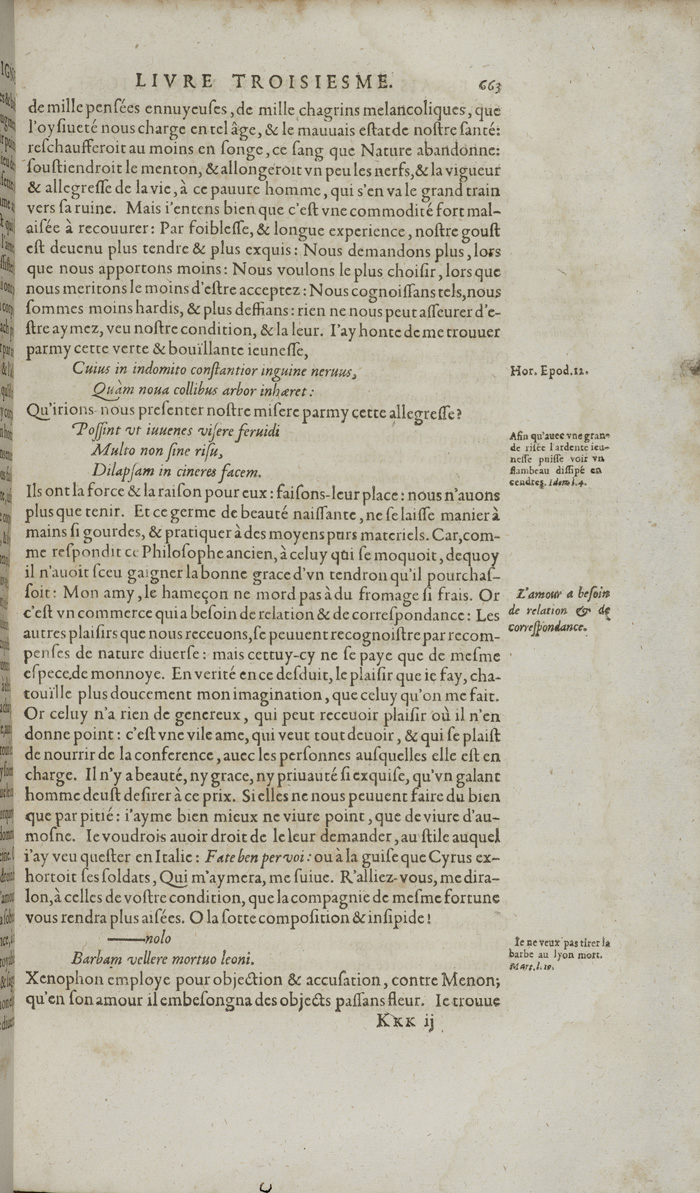 LIVRE TROISIESME. 663
de mille pensées ennuyeuses, de mille chagrins melancoliques, que
l'oysiueté nous charge en tel âge, & le mauuais estat de nostre santé:
reschaufferoit au moins en songe, ce sang que Nature abandonne:
soustiendroit le menton, & allongeroit vn peu les nerfs, & la vigueur
& allegresse de la vie, à ce pauure homme, qui s'en va le grand train
vers sa ruine. Mais i'entens bien que c'est vne commodité fort mal-
aisée à recouurer: Par foiblesse, & longue experience, nostre goust
est deuenu plus tendre & plus exquis: Nous demandons plus, lors
que nous apportons moins: Nous voulons le plus choisir, lors que
nous meritons le moins d'estre acceptez: Nous cognoissans tels, nous
sommes moins hardis, & plus deffians: rien ne nous peut asseurer d'e-
stre aymez, veu nostre condition, & la leur. I'ay honte de me trouuer
parmy cette verte & bouïllante ieunesse,
Cuius in indomito constantior inguine neruus,
Hor. Epod. 12.
Quàm noua collibus arbor inhæret:
Qu'irions-nous presenter nostre misere parmy cette allegresse?
Possint vt iuuenes visere feruidi
Multo non sine risu,
Dilapsam in cineres facem.
Afin qu'auec vne gran-
de risée l'ardente ieu-
nesse puisse voir vn
flambeau dissipé en
cendres. Idem l. 4.
Ils ont la force & la raison pour eux: faisons-leur place: nous n'auons
plus que tenir. Et ce germe de beauté naissante, ne se laisse manier à
mains si gourdes, & pratiquer à des moyens purs materiels. Car, com-
me respondit ce Philosophe ancien, à celuy qui se moquoit, dequoy
il n'auoit sceu gaigner la bonne grace d'vn tendron qu'il pourchas-
soit: Mon amy, le hameçon ne mord pas à du fromage si frais. Or
c'est vn commerce qui a besoin de relation & de correspondance: Les
L'amour a besoin
de relation & de
correspondance.
autres plaisirs que nous receuons, se peuuent recognoistre par recom-
penses de nature diuerse: mais cettuy-cy ne se paye que de mesme
espece de monnoye. En verité en ce desduit, le plaisir que ie fay, cha-
touïlle plus doucement mon imagination, que celuy qu'on me fait.
Or celuy n'a rien de genereux, qui peut receuoir plaisir où il n'en
donne point: c'est vne vile ame, qui veut tout deuoir, & qui se plaist
de nourrir de la conference, auec les personnes ausquelles elle est en
charge. Il n'y a beauté, ny grace, ny priuauté si exquise, qu'vn galant
homme deust desirer à ce prix. Si elles ne nous peuuent faire du bien
que par pitié: i'ayme bien mieux ne viure point, que de viure d'au-
mosne. Ie voudrois auoir droit de le leur demander, au stile auquel
i'ay veu quester en Italie: Fate ben per voi: ou à la guise que Cyrus ex-
hortoit ses soldats, Qui m'aymera, me suiue. R'alliez-vous, me dira-
lon, à celles de vostre condition, que la compagnie de mesme fortune
vous rendra plus aisées. O la sotte composition & insipide!
——nolo
Barbam vellere mortuo leoni.
Ie ne veux pas tirer la
barbe au lyon mort.
Mart. l. 10.
Xenophon employe pour objection & accusation, contre Menon;
qu'en son amour il embesongna des objects passans fleur. Ie trouue
Kkk ij